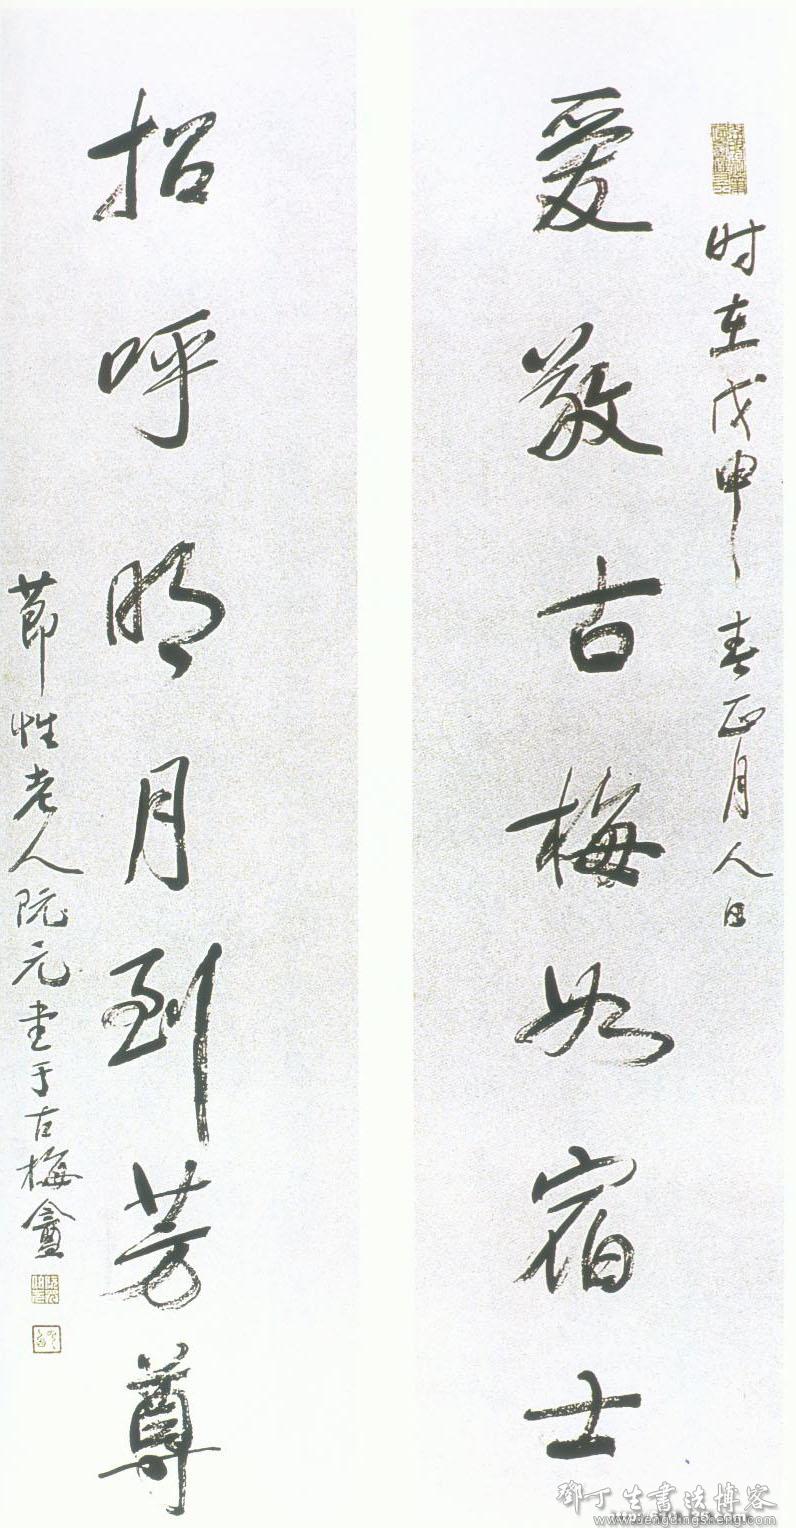 时在戊申春正月人日
爱敬古梅如宿士
招呼明月到芳尊
節性老人阮元書于古梅盦
鄧丁生書法博客
www.dengdingsheng.com